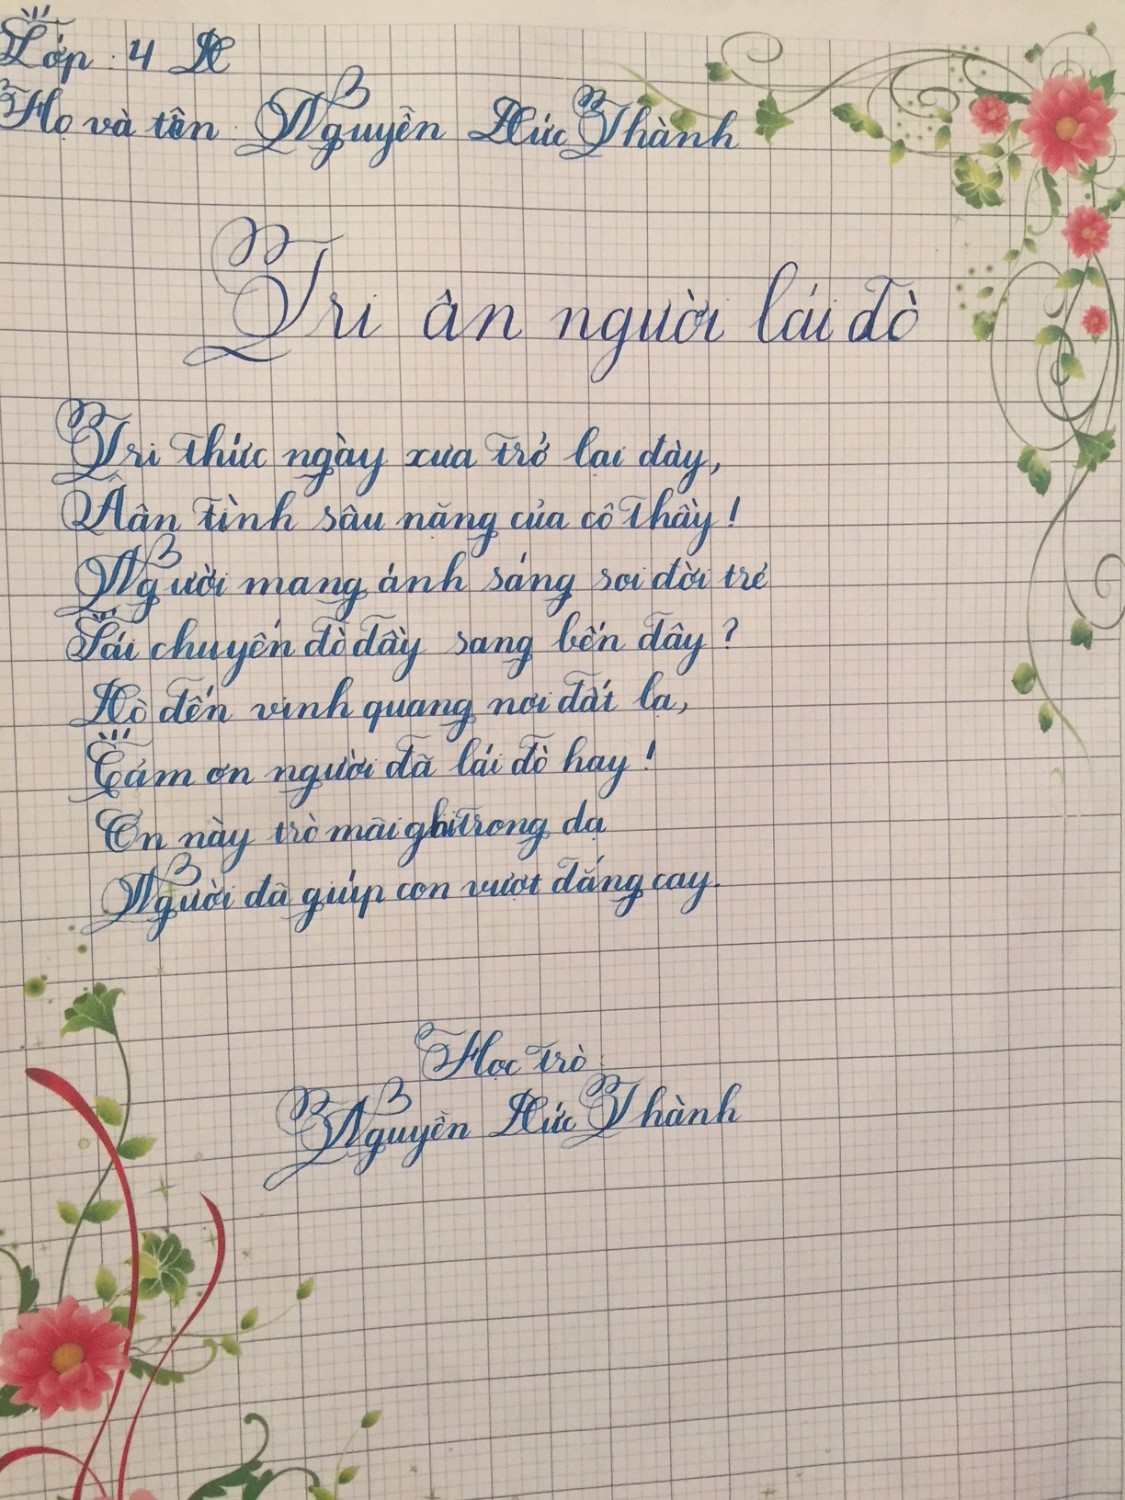 Lớp : 4 Đ
Họ và tên : Nguyễn Đức Thành
Tri ân người lái đò
Tri thức ngày xưa trở lại đây,
Ân tình sâu nặng của cô thầy!
Người mang ánh sáng soi đời trẻ
Lái chuyến đò đầy sang bến đây?
Đò đến vinh quang nơi đất lạ,
Cám ơn người đã lái đò hay!
Ơn này trò mãi ghi trong dạ
Người đã giúp con vượt đắng cay.
Học trò :
Nguyễn Đức Thành